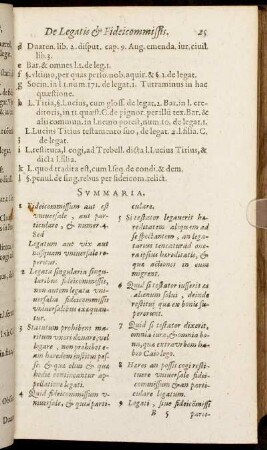 De Legatis & Fideicommiss. 25
d Duaren. lib. 2. disput. cap. 9. Aug. emenda. iur. ciuil.
lib. 3.
e Bar. & omnes l. 1. de leg. 1.
f §. vltimo, per quas perso. nob. aquir. & §. 1. de legat.
g Socin. in l. 1. num. 171. de legat. 1. Turraminus in hac
quæstione.
h L. Titia, §. Lucius, cum gloss. de legat. 2. Bar. in l. cre-
ditoris, in 11. quæst. C. de pignor. per illû tex. Ber. &
alii commun. in l. nemo potest, num. 10. de legat. 1.
l. Lucius Titius testamento suo, de legat. 2. l. filia. C.
de legat.
i L. restitura, l. cogi, ad Trebell. dicta l. Lucius Titius, &
dicta l. filia.
k L. quod tradita est, cum l. seq. de condi. & dem.
l §. penul. de sing. rebus per fideicom. relict.
SVMMARIA.
1 Fideicommissum aut est
vniuersale, aut par-
ticulare, & numer. 4.
Sed
Legatum aut vix aut
nusquam vniuersale re-
peritur.
2 Legata singularia singu-
laribus fideicommissis,
non autem legata vni-
uersalia fideicommissis
vniuersalibus exæquan-
tur.
3 Statutum prohibens ma-
ritum vxori donare, vel
legare, non prohibet e-
am heredem institui pos-
se: & quo and quo
modo hæc continentur ap-
pellatione legati.
4 Quid fideicommissum v-
niuersale, & quid parti-
culare.
5 Si testator legauerit hæ-
reditatem alienam ad
se spectantem, an lega-
tarius teneatur ad one-
ra ipsius hereditatis, &
qua actiones in eum
migrent.
6 Quid si testator iusserit æs
alienum solui, deinde
restitui quæ ex bonis su-
pererunt.
7 Quid si testator dixerit,
omnia iura, & omnia bo-
na, quæ extra vrbem ha-
beo Caio lego.
8 Hæres an possit cogi restitu-
ere vniuersale fideicom-
missum & an parti-
culare legatum.
9 Legati, siue fideicommissi
B 5 parti-